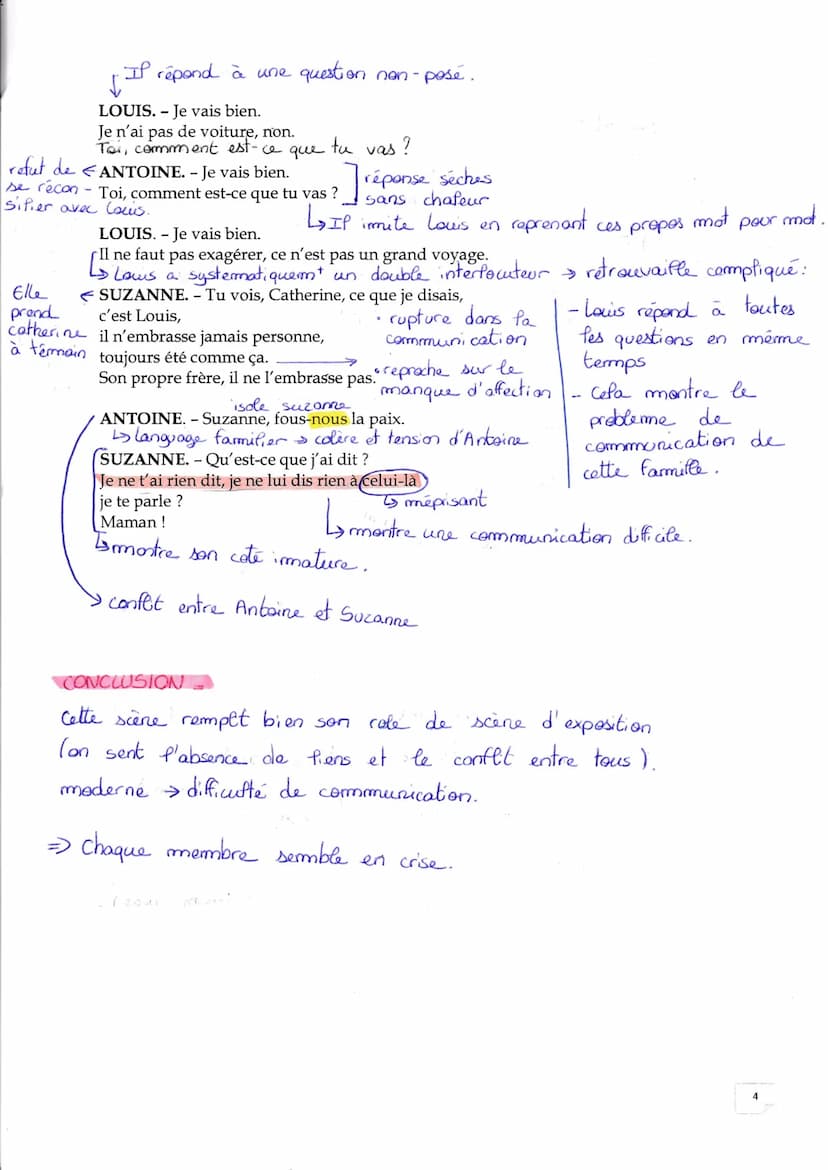 Il répond à une question non-posé.
LOUIS. – Je vais bien.
Je n'ai pas de voiture, non.
Toi, comment est-ce que tu vas ?
refut de
se récon-
sifier avec Louis.
ANTOINE. – Je vais bien.
Toi, comment est-ce que tu vas ?
réponse séches
sans chaleur
Il imite Louis en reprenant ces propos mot pour mot.
LOUIS. – Je vais bien.
Il ne faut pas exagérer, ce n'est pas un grand voyage.
Louis a systematiquemt un double interlocuteur → retrouvaille compliqué :
Elle
prend
catherine
à témain
SUZANNE. – Tu vois, Catherine, ce que je disais,
c'est Louis,
il n'embrasse jamais personne,
toujours été comme ça.
Son propre frère, il ne l'embrasse pas.
• rupture dans la
communication
• reproche sur le
manque d'affection
- Louis répond à toutes
les questions en même
temps
- Cela montre le
probleme de
communication de
cette famille.
isole suzanne
ANTOINE. – Suzanne, fous-nous la paix.
language familier → colère et tension d'Antoine
SUZANNE. – Qu'est-ce que j'ai dit ?
Je ne t'ai rien dit, je ne lui dis rien à celui-là
je te parle ?
Maman !
méprisant
montre une communication difficile.
montre son coté imature.
conflit entre Antoine et Suzanne
CONCLUSION =
Cette scène remplit bien son role de scène d'exposition
(on sent l'absence de liens et le conflit entre tous).
moderne → difficulté de communication.
⇒ Chaque membre semble en crise.
4